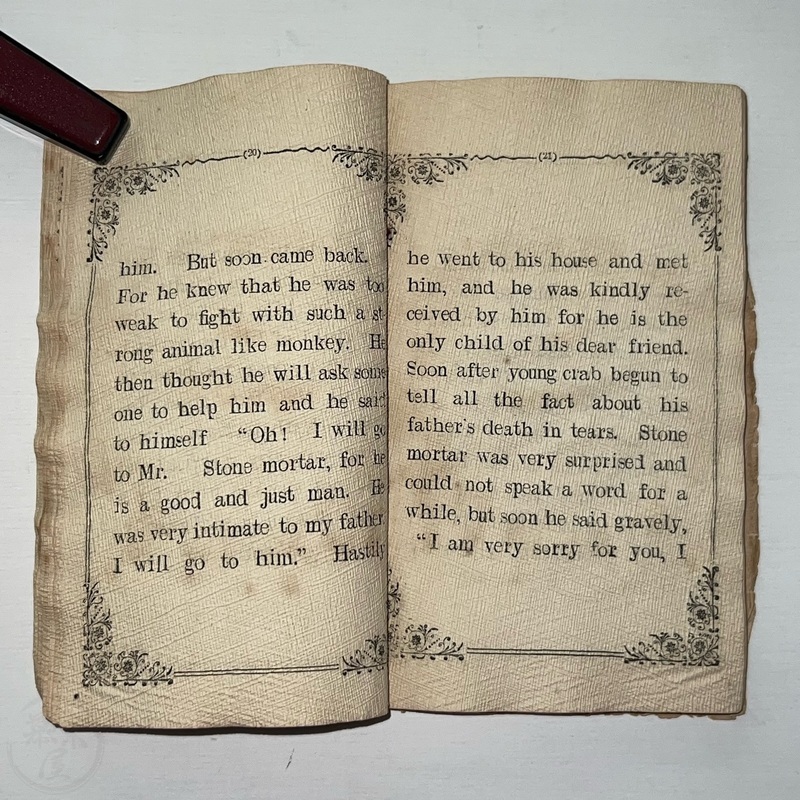 (20)
him. But soon came back.
For he knew that he was too
weak to fight with such a st-
rong animal like monkey. He
then thought he will ask some
one to help him and he said
to himself “Oh! I will go
to Mr. Stone mortar, for he
is a good and just man. He
was very intimate to my father.
I will go to him.” Hastily
(21)
he went to his house and met
him, and he was kindly re-
ceived by him for he is the
only child of his dear friend.
Soon after young crab begun to
tell all the fact about his
father's death in tears. Stone
mortar was very surprised and
could not speak a word for a
while, but soon he said gravely,
“I am very sorry for you, I